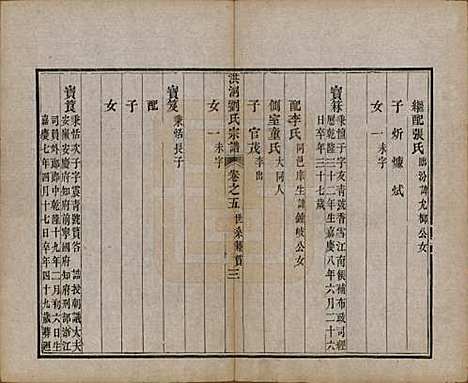 繼配張氏 臨汾諱允榔公女
子 炘 爐 斌
女
寶箖 秉愃子字亥青號香雪江南候補布政司經
歷乾隆三十二年生嘉慶八年六月二十六
日卒年三十七歲
配李氏 同邑庠生諱鍾岐公女
側室童氏 大同人
子 官茂 李出
女 一 未字
洪洞劉氏宗譜 卷之五 世系雜貫 三
寶笈 秉恬長子
配
子
女
寶篔 秉恬次子字雲青號篔谷 誥授朝議大夫
安廬安慶府知府前寧國府知府刑部浙江
司員外郎郎中乾隆十九年二月初六日生
嘉慶七年四月十七日卒年四十九歲葬廻